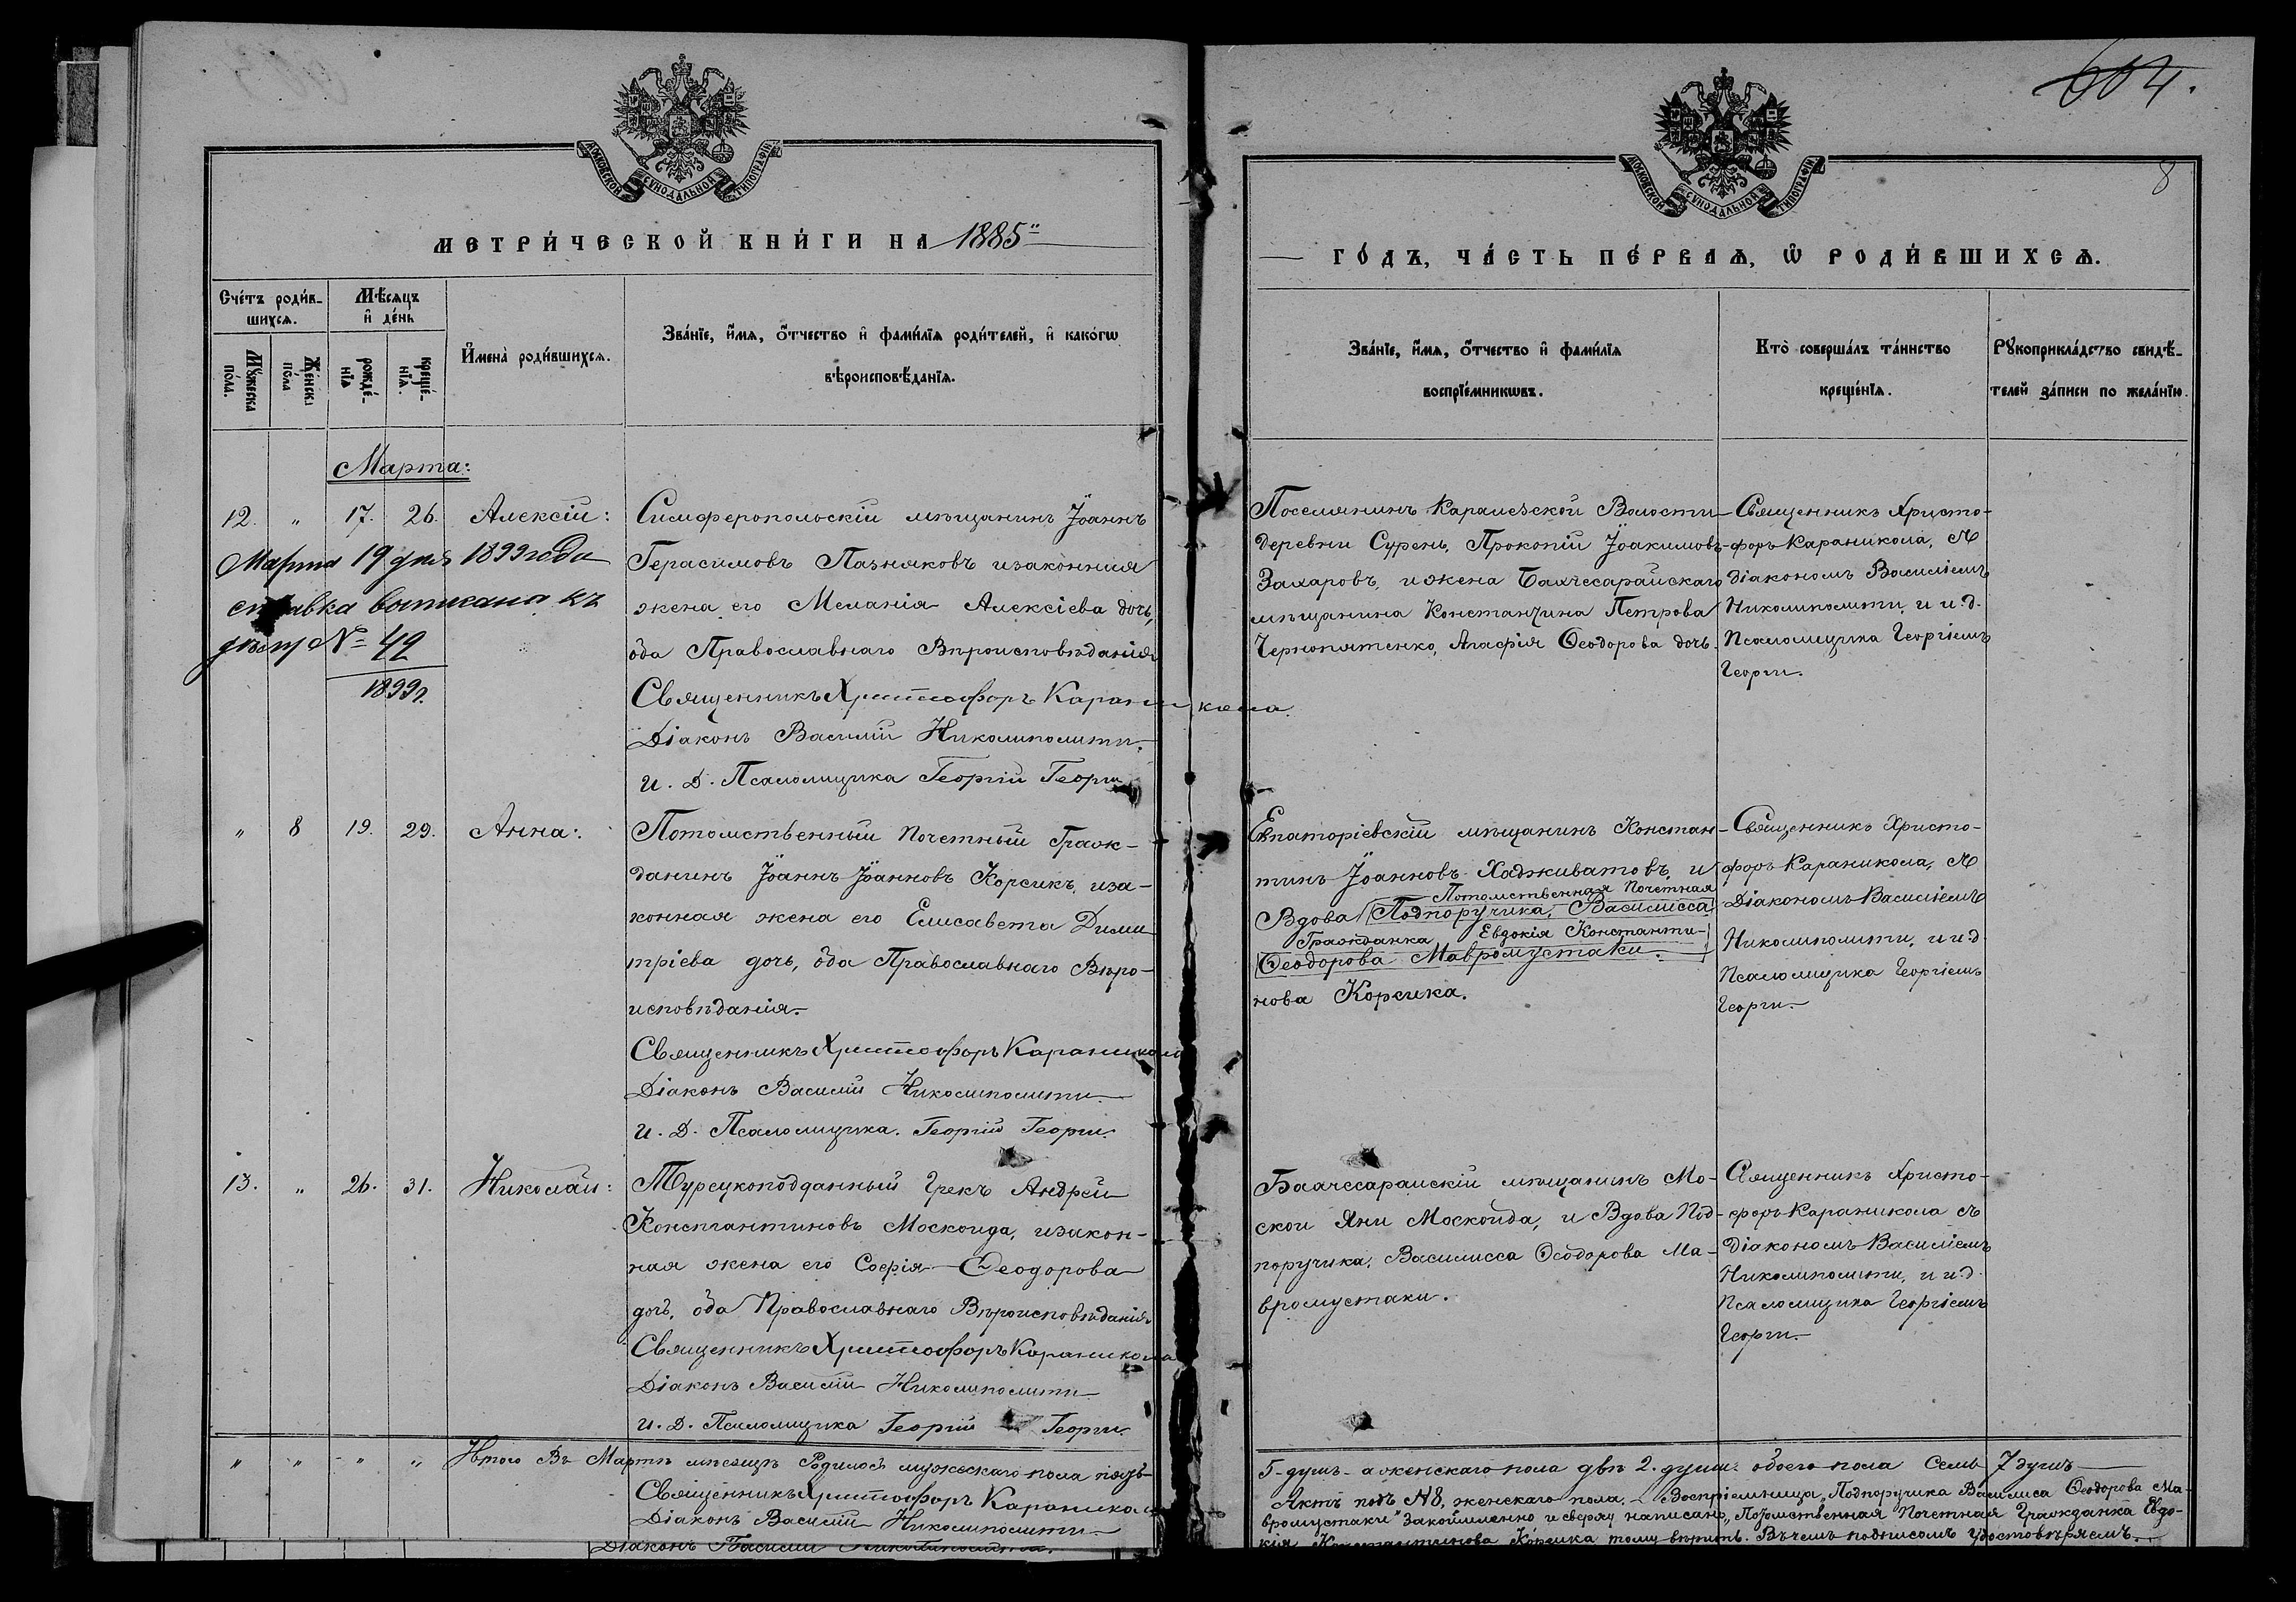 604.
8
МОСКОВСКОЙ СѴНОДАЛЬНОЙ ТИПОГРАФІИ
МЕТРИ́ЧЕСКОЙ КНИ́ГИ НА 1885
Сче́тъ роди́в-
шихсѧ.
Мѣсѧцъ
и҆ де́нь
Мꙋжеска
по́ла.
Же́нска
по́ла
рожде́-
нїѧ
креще́-
нїѧ.
И҆мена̀ роди́вшихсѧ.
Зва́нїе, и҆́мѧ, ѻ҆́тчество и҆ фами́лїѧ роди́телей, и҆ како́гѡ
вѣроисповѣ́данїѧ.
Марта:
12. " 17. 26. Алексій: Симферопольскій мѣщанинъ Іоаннъ
Герасимовъ Пазняковъ изаконная
жена его Меланія Алексіева дочь,
оба Православнаго Вѣроисповѣданія
Священникъ Христофоръ Караникола.
Діаконъ Василій Николиполити.
И. Д. Псаломщика Георгій Георги
Марта 19 дня 1899 года
справка выписана къ
дѣлу № 42
1899 г.
" 8 19. 29. Анна: Потомственный Почетный Граж-
данинъ Іоаннъ Іоанновъ Корсикъ, иза-
конная жена его Елисавета Дими
тріева дочь, оба Православнаго Вѣро-
исповѣданія.
Священникъ Христофоръ Караникола
Діаконъ Василій Николиполити
И. Д. Псаломщика. Георгій Георги.
13. " 26. 31. Николай: Турецкоподданный Грекъ Андрей
Константиновъ Москоида, изакон-
ная жена его Софія Ѳеодорова
дочь, оба Православнаго Вѣроисповѣданія
Священникъ Христофоръ Караникола
Діаконъ Василій Николиполити
И. Д. Псаломщика Георгій Георги.
" " " " Итого Въ Мартѣ мѣсяцѣ Родилось мужескаго пола пять-
Священникъ Христофоръ Караникола
Діаконъ Василій Николиполити
Діаконъ Василій Николиполити.
МОСКОВСКОЙ СѴНОДАЛЬНОЙ ТИПОГРАФІИ
ГО́ДЪ, ЧА́СТЬ ПЕ́РВАѦ, Ѡ҆ РОДИ́ВШИХСѦ.
Зва́нїе, и҆́мѧ, ѻ҆́тчество и҆ фами́лїѧ
воспрїе́мникѡвъ.
Кто̀ соверша́лъ та́инство
креще́нїѧ.
Рꙋкоприкла́дство свидѣ́-
телей за́писи по жела́нїю.
Поселянинъ Каралезской Волости
деревни Сурень, Прокопій Іоакимовъ
Захаровъ, и жена Бахчесарайскаго
мѣщанина Константина Петрова
Чернопятенко, Агафія Ѳеодорова дочь.
Священникъ Христо-
форъ Караникола, съ
Діакономъ Василіемъ
Николиполити, и и.д.
Псаломщика Георгіемъ
Георги.
Евпаторіевскій мѣщанинъ Констан-
тинъ Іоанновъ Хадживатовъ, и
Потомственная Почетная
Вдова Подпоручика, Василисса
Гражданка Евдокія Константи-
Ѳеодорова Мавромустаки.
нова Корсика.
Священникъ Христо-
форъ Караникола, съ
Діакономъ Василіемъ
Николиполити, и и.д
Псаломщика Георгіемъ
Георги.
Бахчесарайскій мѣщанинъ Мо-
ской Яни Москоида, и Вдова Под-
поручика, Василисса Ѳеодорова Ма-
вромустаки.
Священникъ Христо-
форъ Караникола съ
Діакономъ Василіемъ
Николиполити, и и.д.
Псаломщика Георгіемъ
Георги.
5-душъ - а женскаго пола двѣ 2. души: обоего пола семь 7 душъ
Актъ подъ № 8, женскаго пола, - Воспріемница, „Подпоручика Василиса Ѳеодорова Ма-
вромустаки" Закоймленно и сверху написано „Потомственная Почетная Гражданка Евдо-
кія Константинова Корсика тому вѣрить. Въ чемъ подписомъ удостовѣряемъ.